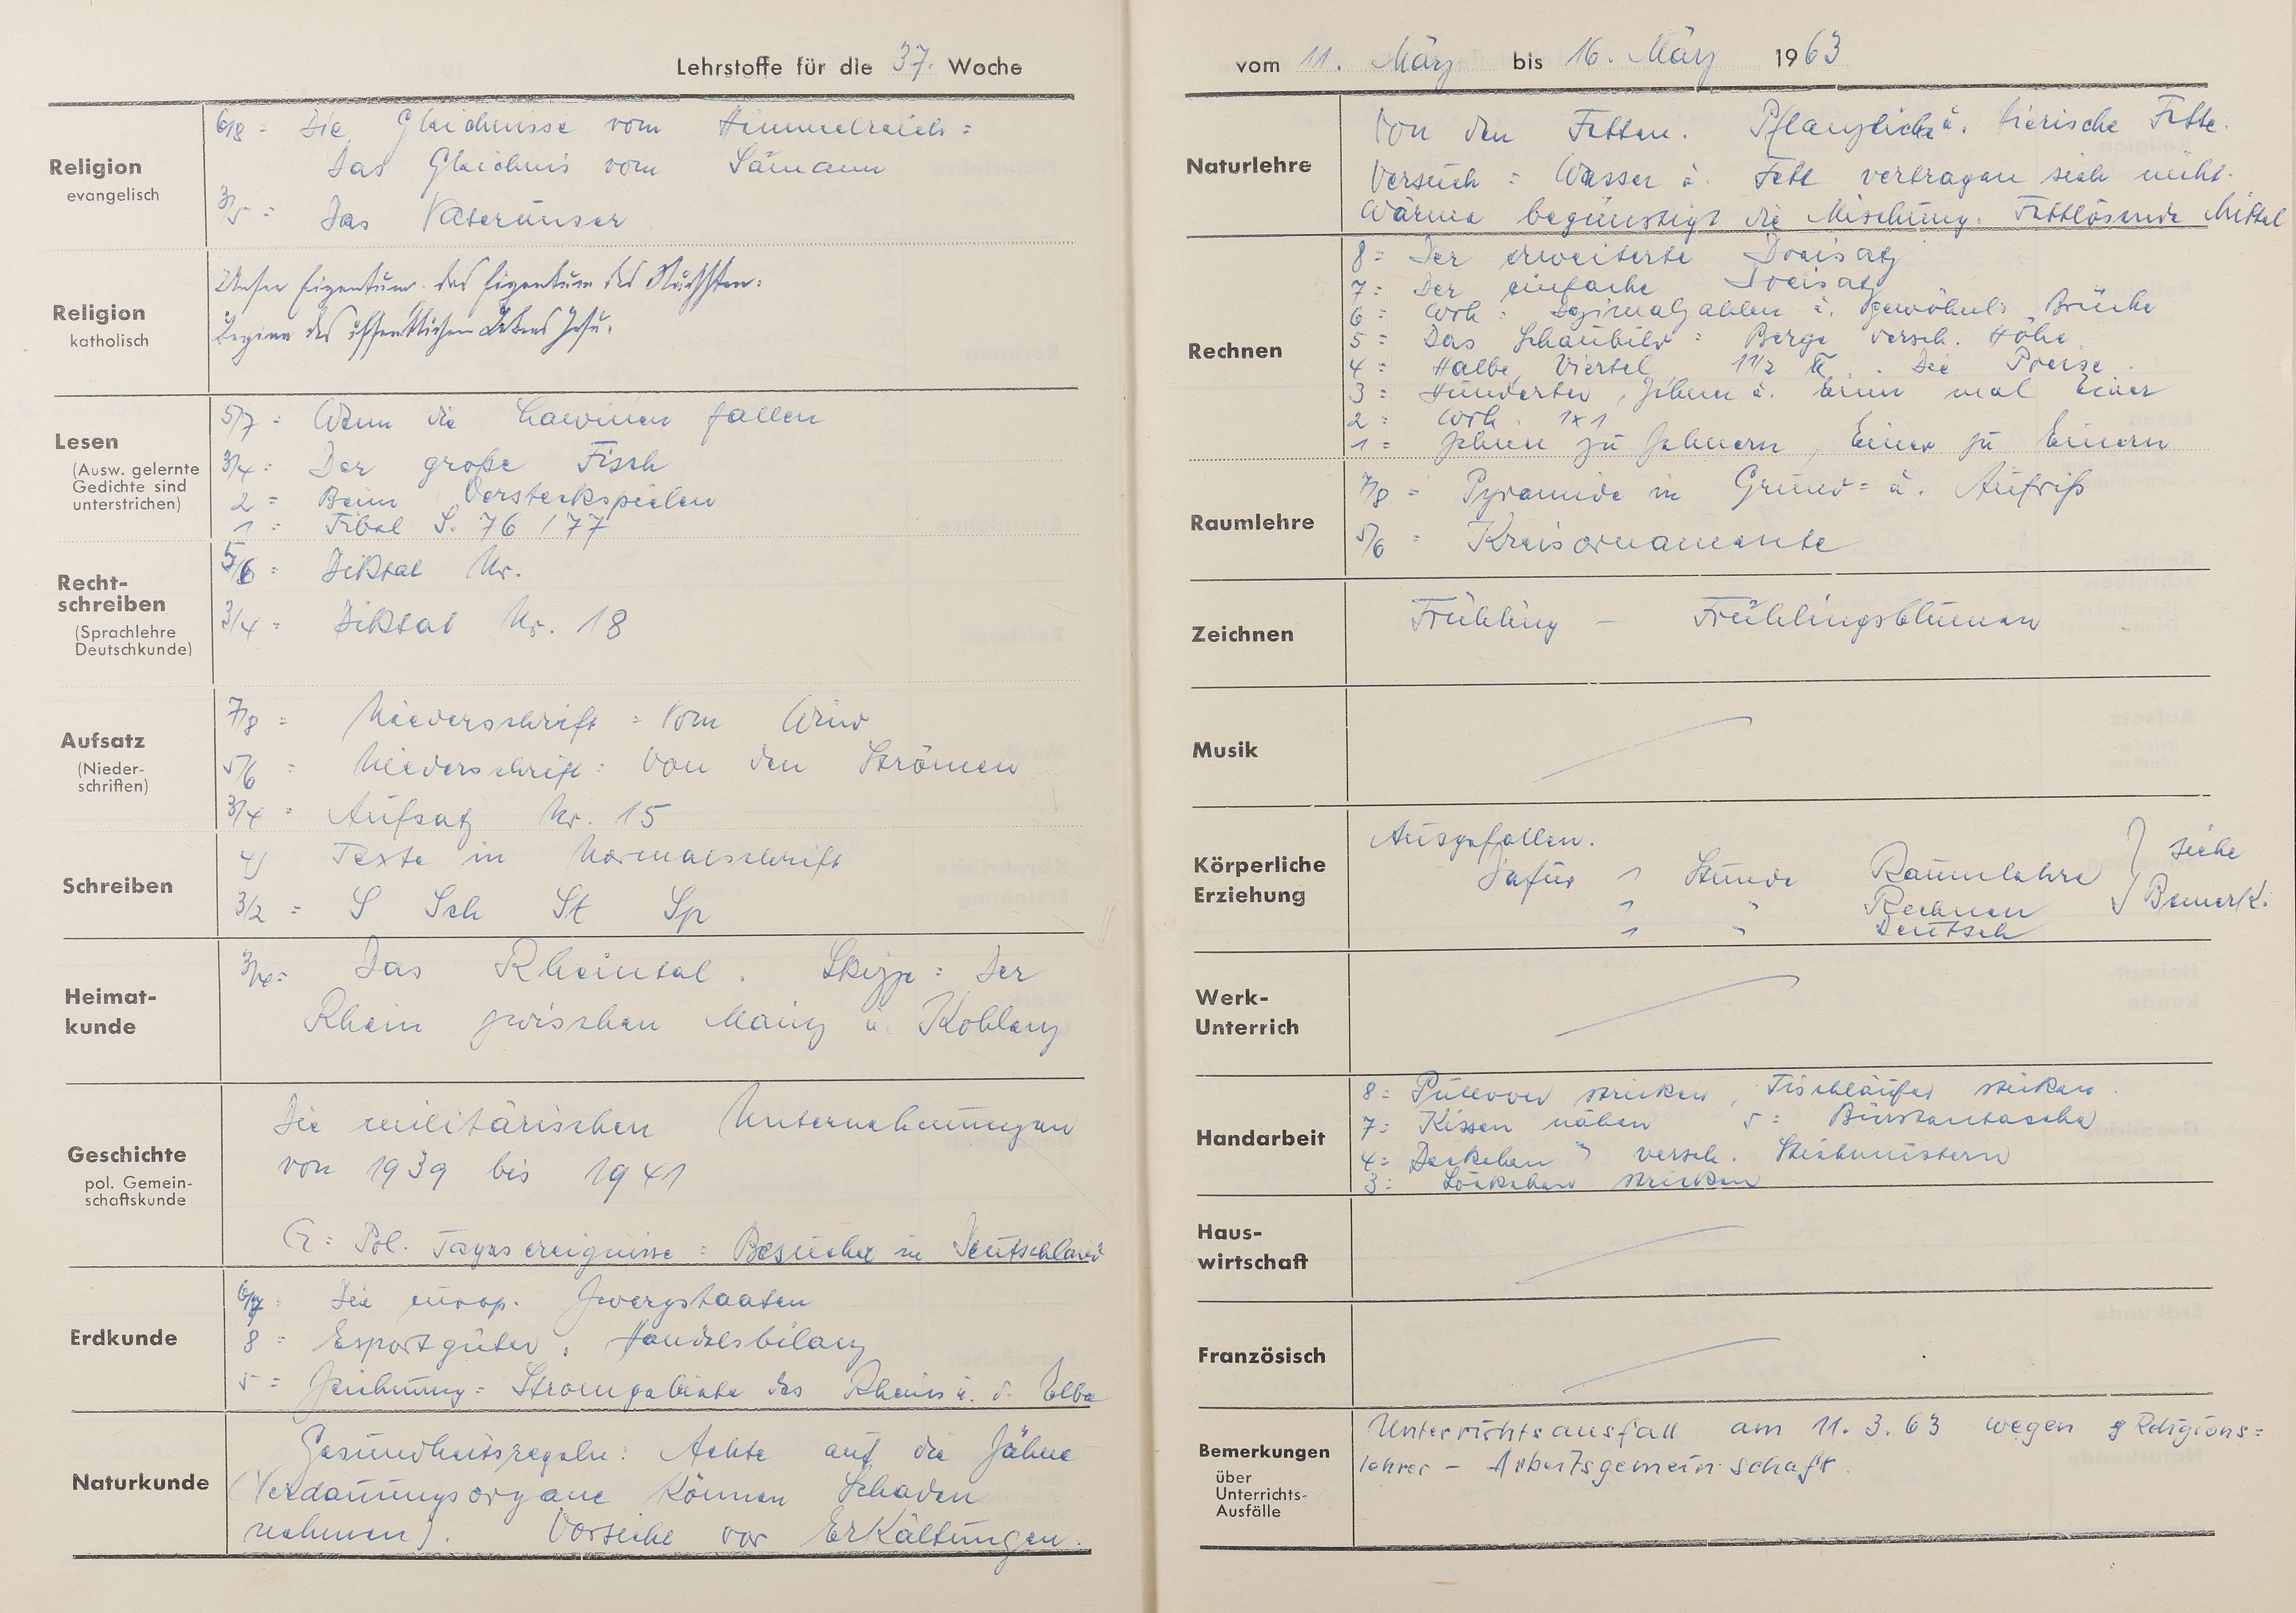 Lehrstoffe für die 37. Woche
Religion
evangelisch
6/8 = Die Gleichnisse vom Himmelreich =
Das Gleichnis vom Sämann
3/5 = Das Vaterunser
Religion
katholisch
Unser Eigentum. das Eigentum des Nächsten.
Beginn des öffentlichen Lebens Jesu.
Lesen
(Ausw. gelernte
Gedichte sind
unterstrichen)
5/7 = Wenn die Lawinen fallen
3/4 = Der große Fisch
2 = Beim Versteckspielen
1 = Fibel S. 76 / 77
Recht-
schreiben
(Sprachlehre
Deutschkunde)
5/6 = Diktat Nr.
3/4 = Diktat Nr. 18
Aufsatz
(Nieder-
schriften)
7/8 = Niederschrift = Vom Wind
5/6 = Niederschrift = Von den Strömen
3/4 = Aufsatz Nr. 15
Schreiben
4) Texte in Normalschrift
3/2 = S Sch St Sp
Heimat-
kunde
3/4 = Das Rheintal. Skizze = Der
Rhein zwischen Mainz u. Koblenz
Geschichte
pol. Gemein-
schaftskunde
Die militärischen Unternehmungen
von 1939 bis 1941
G = Pol. Tagesereignisse = Besuche in Deutschland
Erdkunde
6/7 = Die europ. Zwergstaaten
8 = Exportgüter, Handelsbilanz
5 = Zeichnung = Stromgebiete des Rheins u. d. Elbe
Naturkunde
Gesundheitsregeln: Achte auf die Zähne
(Verdauungsorgane können Schaden
nehmen). Vorsicht vor Erkältungen.
vom 11. März bis 16. März 1963
Naturlehre
Von den Fetten. Pflanzliche u. tierische Fette.
Versuch = Wasser u. Fett vertragen sich nicht.
Wärme begünstigt die Mischung. Fettlösende Mittel
Rechnen
8 = Der erweiterte Dreisatz
7 = Der einfache Dreisatz
6 = Wdh = Dezimalzahlen u. gewöhnl. Brüche
5 = Das Schaubild = Berge versch. Höhe
4 = Halbe, Viertel, 1 1/2 ℔. Die Preise
3 = Hunderter, Zehner u. Einer mal Einer
2 = Wdh. 1x1
1 = Zehner zu Zehnern, Einer zu Einern
Raumlehre
7/8 = Pyramide in Grund= u. Aufriß
5/6 = Kreisornamente
Zeichnen
Frühling — Frühlingsblumen
Musik
Körperliche
Erziehung
Ausgefallen.
Dafür 1 Stunde Raumlehre } siehe
1 " Rechnen Bemerk.
1 " Deutsch
Werk-
Unterrich
Handarbeit
8 = Pullover stricken, Tischläufer sticken.
7 = Kissen nähen 5 = Bürstentasche
4 = Deckchen " versch. Stichmustern
3 = Söckchen stricken
Haus-
wirtschaft
Französisch
Bemerkungen
über
Unterrichts-
Ausfälle
Unterrichtsausfall am 11. 3. 63 wegen Religions=
lehrer - Arbeitsgemeinschaft.